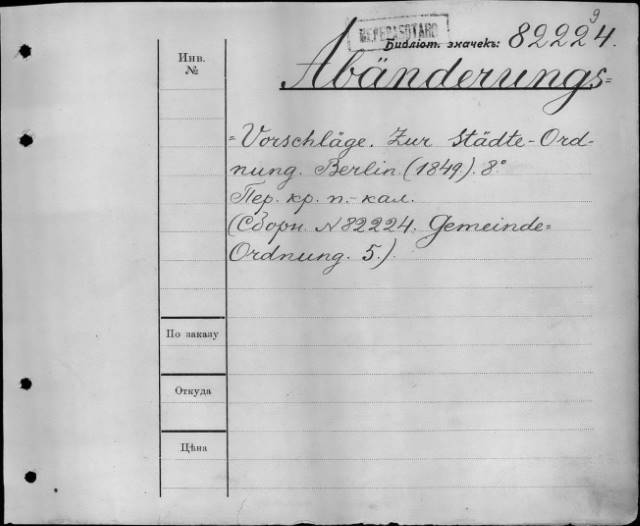 9
Библіот. значекъ: 82224.
Инв.
№
Abänderungs=
=Vorschläge. Zur Städte-Ord-
nung. Berlin. (1849). 8°
Пер. кр. п.-кал.
(Сборн. N 82224. Gemeinde=
Ordnung. 5.)
По заказу
Откуда
Цѣна